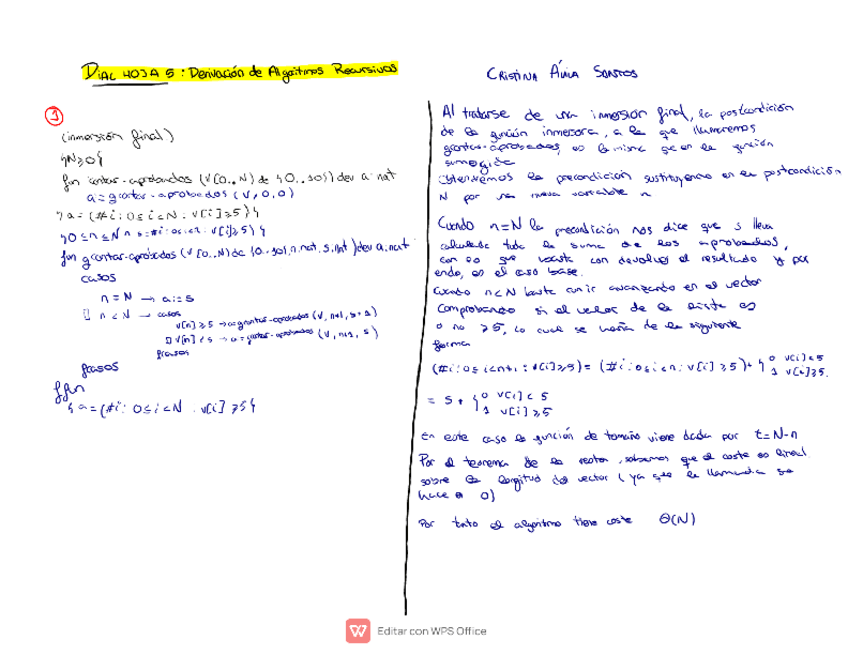 DIAL HOJA 5 : Derivación de Algoritmos Recursivos
CRISTINA ÁVILA SANTOS
1
(inmersión final)
{N≥0}
fun contar-aprobados (V[0..N) de {0..10}) dev a: nat
a = gcontar-aprobados (V, 0, 0)
{a = (#i: 0≤i<N : V[i]≥5)}
{0≤n≤N ∧ s=#i: 0≤i<n : V[i]≥5)}
fun gcontar-aprobados (V[0..N) de {0..10}, n: nat, s: nat) dev a: nat
casos
n = N → a := s
[] n < N → casos
V[n] ≥ 5 → a = gcontar-aprobados (V, n+1, s+1)
[] V[n] < 5 → a = gcontar-aprobados (V, n+1, s)
fcasos
fcasos
ffun
{a = (#i: 0≤i<N : V[i] ≥5}
Al tratarse de una inmersión final, la postcondición
de la función inmersora, a la que llamaremos
gcontar-aprobados, es la misma que en la función
sumergida
Obtenemos la precondición sustituyendo en la postcondición
N por una nueva variable n
Cuando n=N la precondición nos dice que s lleva
calculado toda la suma de los aprobados,
con lo que basta con devolver el resultado y por
ende, es el caso base.
Cuando n<N basta con ir avanzando en el vector
comprobando si el valor de la lista es
o no ≥5, lo cual se haría de la siguiente
forma
(#i: 0≤i<n+1 : V[i]≥5) = (#i: 0≤i<n : V[i]≥5) + { 0 V[i]<5
1 V[i]≥5.
= s + { 0 V[i] < 5
1 V[i]≥5
En este caso la función de tamaño viene dada por t=N-n
Por el teorema de la resta, sabemos que el coste es lineal
sobre la longitud del vector (ya que la llamada se
hace a 0)
Por tanto el algoritmo tiene coste Θ(N)
Editar con WPS Office